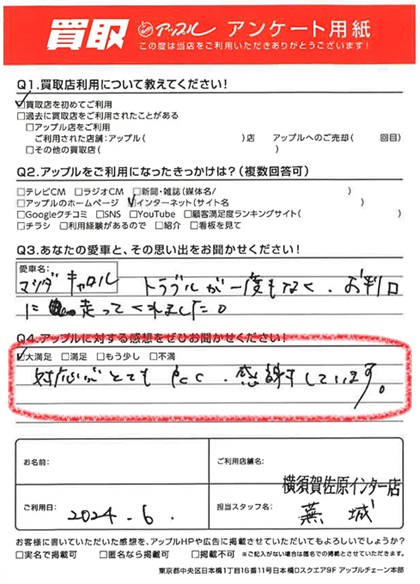 買取 アップル アンケート用紙
この度は当店をご利用いただきありがとうございます!
Q1.買取店利用について教えてください!
☑買取店を初めてご利用
□過去に買取店をご利用されたことがある
□アップル店をご利用
ご利用された店舗:アップル( )店 アップルへのご売却( 回目)
□その他の買取店( )
Q2.アップルをご利用になったきっかけは?(複数回答可)
□テレビCM □ラジオCM □新聞・雑誌(媒体名/ )
□アップルのホームページ ☑インターネット(サイト名 )
□Googleクチコミ □SNS □YouTube □顧客満足度ランキングサイト( )
□チラシ □利用経験があるので □紹介 □看板を見て
Q3.あなたの愛車と、その思い出をお聞かせください!
愛車名:
マツダ キャロル トラブルが一度もなく、お利口
に 走ってくれました。
Q4.アップルに対する感想をぜひお聞かせください!
☑大満足 □満足 □もう少し □不満
対応がとても 、感謝しています。
お名前:
ご利用店舗名:
横須賀佐原インター店
ご利用日:
2024.6.
担当スタッフ名:
蕪城
お客様に書いていただいた感想を、アップルHPや広告に掲載させていただいてもよろしいでしょうか?
□実名で掲載可 □匿名なら掲載可 □掲載不可 ※ご記入がない場合は匿名での掲載とさせていただきます。
東京都中央区日本橋1丁目16番11号日本橋Dスクエア9F アップルチェーン本部